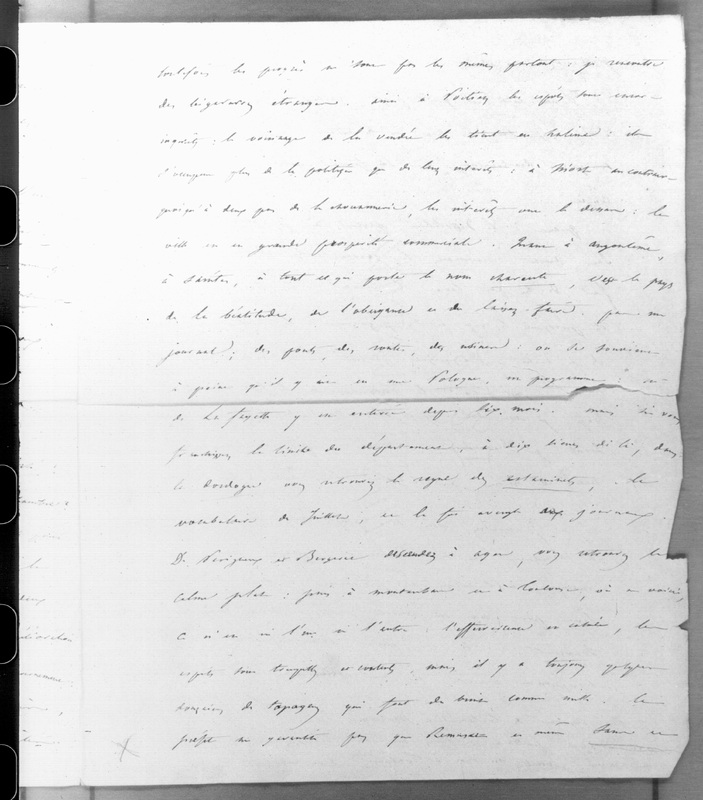 toutefois les progrès ne sont pas les mêmes partout : je
des étrangers. ainsi à Poitiers les esprits sont encore
inquiets : le voisinage de la vendée les tient en haleine : on
s'occupe plus de la politique que de leurs intérêts : à Niort au contraire
quoiqu'à deux pas de la chouannerie, les intérêts ont le dessus : la
ville est en grande prospérité commerciale. Quant à angoulême,
à saintes, à tout ce qui porte le nom charente, c'est le pays
de la béatitude, de l'obligeance et du laissez-faire. pas un
journal ; des ponts, des routes, des usines : on se souvient
à peine qu'il y ait eu une Pologne, un programme
de La fayette y est enterré depuis dix mois. mais si vous
franchissez la limite des départements, à dix lieues de là, dans
la dordogne vous retrouvez le règne des estaminets, le
vocabulaire de Juillet, et la foi aveugle aux journaux.
De Périgueux et Bergerac descendez à agen, vous retrouvez le
calme plat : puis à montauban et à Toulouse, où me voici,
ce n'est ni l'un ni l'autre : l'effervescence est calmée, les
esprits sont tranquilles et contents, mais il y a toujours quelques
douzaines de tapageurs qui font du bruit comme mille. le
préfet ne pas que Remusat et même